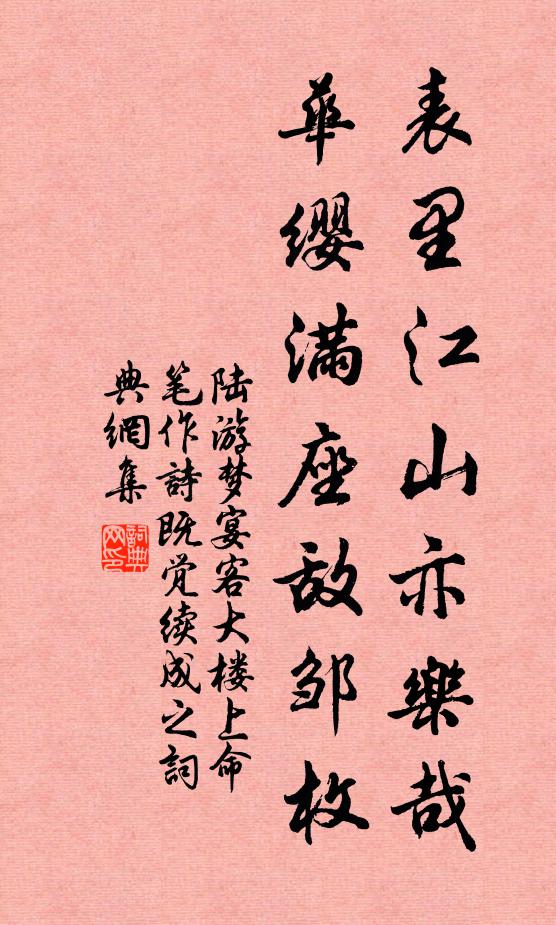 表里江山亦樂哉
華缨满座敌邹枚
陆游梦宴客大楼上命
笔作詩既觉续成之詞
典網集
詞典
网印